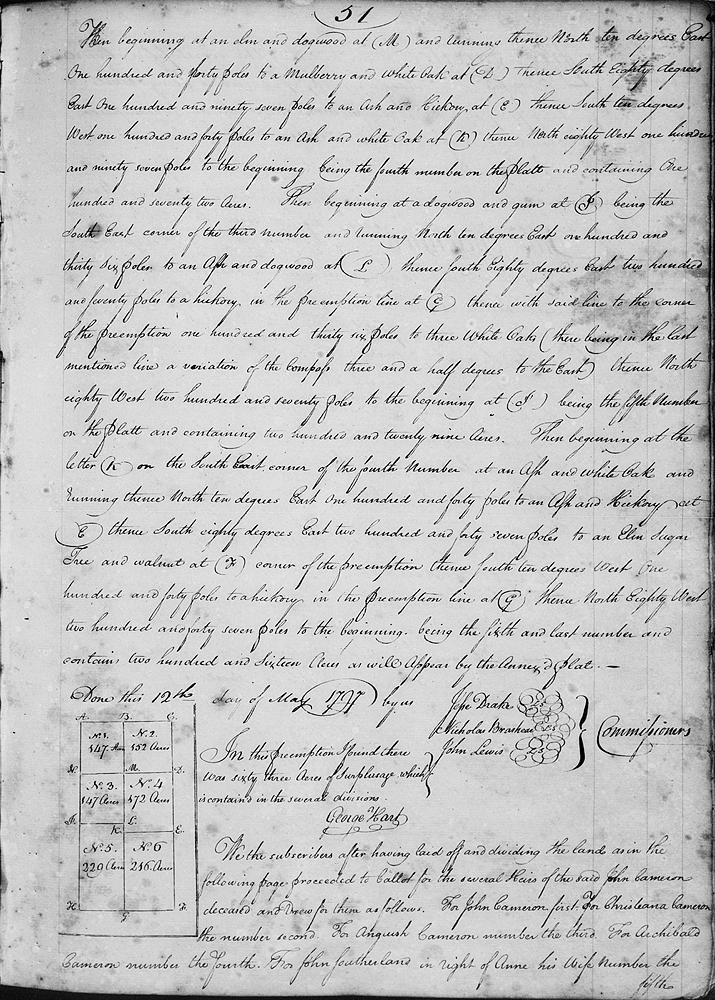 51
Then beginning at an elm and dogwood at (M) and running thence North ten degrees East
One hundred and forty poles to a Mulberry and White Oak at (D) Thence South Eighty degrees
East One hundred and ninety seven poles to an Ash and Hickory at (E) thence South ten degrees
West one hundred and forty poles to an Ash and white Oak at (K) thence North eighty West one hundred
and ninety seven poles to the beginning being the fourth number on the Platt and containing One
hundred and seventy two Acres. Then beginning at a dogwood and gum at being the
South East corner of the third number and running North ten degrees East one hundred and
thirty six poles to an Ash and dogwood at (L) thence South Eighty degrees East two hundred
and seventy poles to a hickory in the preemption line at (G) thence with said line to the corner
of the preemption one hundred and thirty six poles to three White Oaks (there being in the last
mentioned line a variation of the Compass three and a half degrees to the East) thence North
eighty West two hundred and seventy poles to the beginning at being the fifth Number
on the Platt and containing two hundred and twenty nine Acres. Then beginning at the
letter (K) on the South East corner of the fourth Number at an Ash and white Oak and
running thence North ten degrees East One hundred and forty poles to an Ash and Hickory at
(E) thence South eighty degrees East two hundred and forty seven poles to an Elm Sugar
Tree and walnut at (F) corner of the preemption thence South ten degrees West One
hundred and forty poles to a hickory in the preemption line at (G) thence North Eighty West
two hundred and forty seven poles to the beginning. being the sixth and last number and
contains two hundred and Sixteen Acres as will Appear by the Annex'd plat. —
Done this 12th day of May 1797 by us
Jesse Drake
Nicholas Brashear
John Lewis
Commissioners
A. B. C.
No. 1. No. 2.
147 Acres 152 Acres
M. D.
No. 3. No. 4
147 Acres 172 Acres
L.
K. E.
No. 5. No. 6
229 Acres 216 Acres
H. F.
G
In this preemption I found there
was sixty three Acres of Surplusage which
is contain'd in the several divisions.
George Hart
We the subscribers after having laid off and dividing the land as in the
following page proceeded to Ballot for the several Heirs of the said John Cameron
deceased and Drew for them as follows. For John Cameron first. For Christeana Cameron
the number second. For Anguish Cameron number the third. For Archibald
Cameron number the fourth. For John Southerland in right of Anne his Wife Number the
fifth